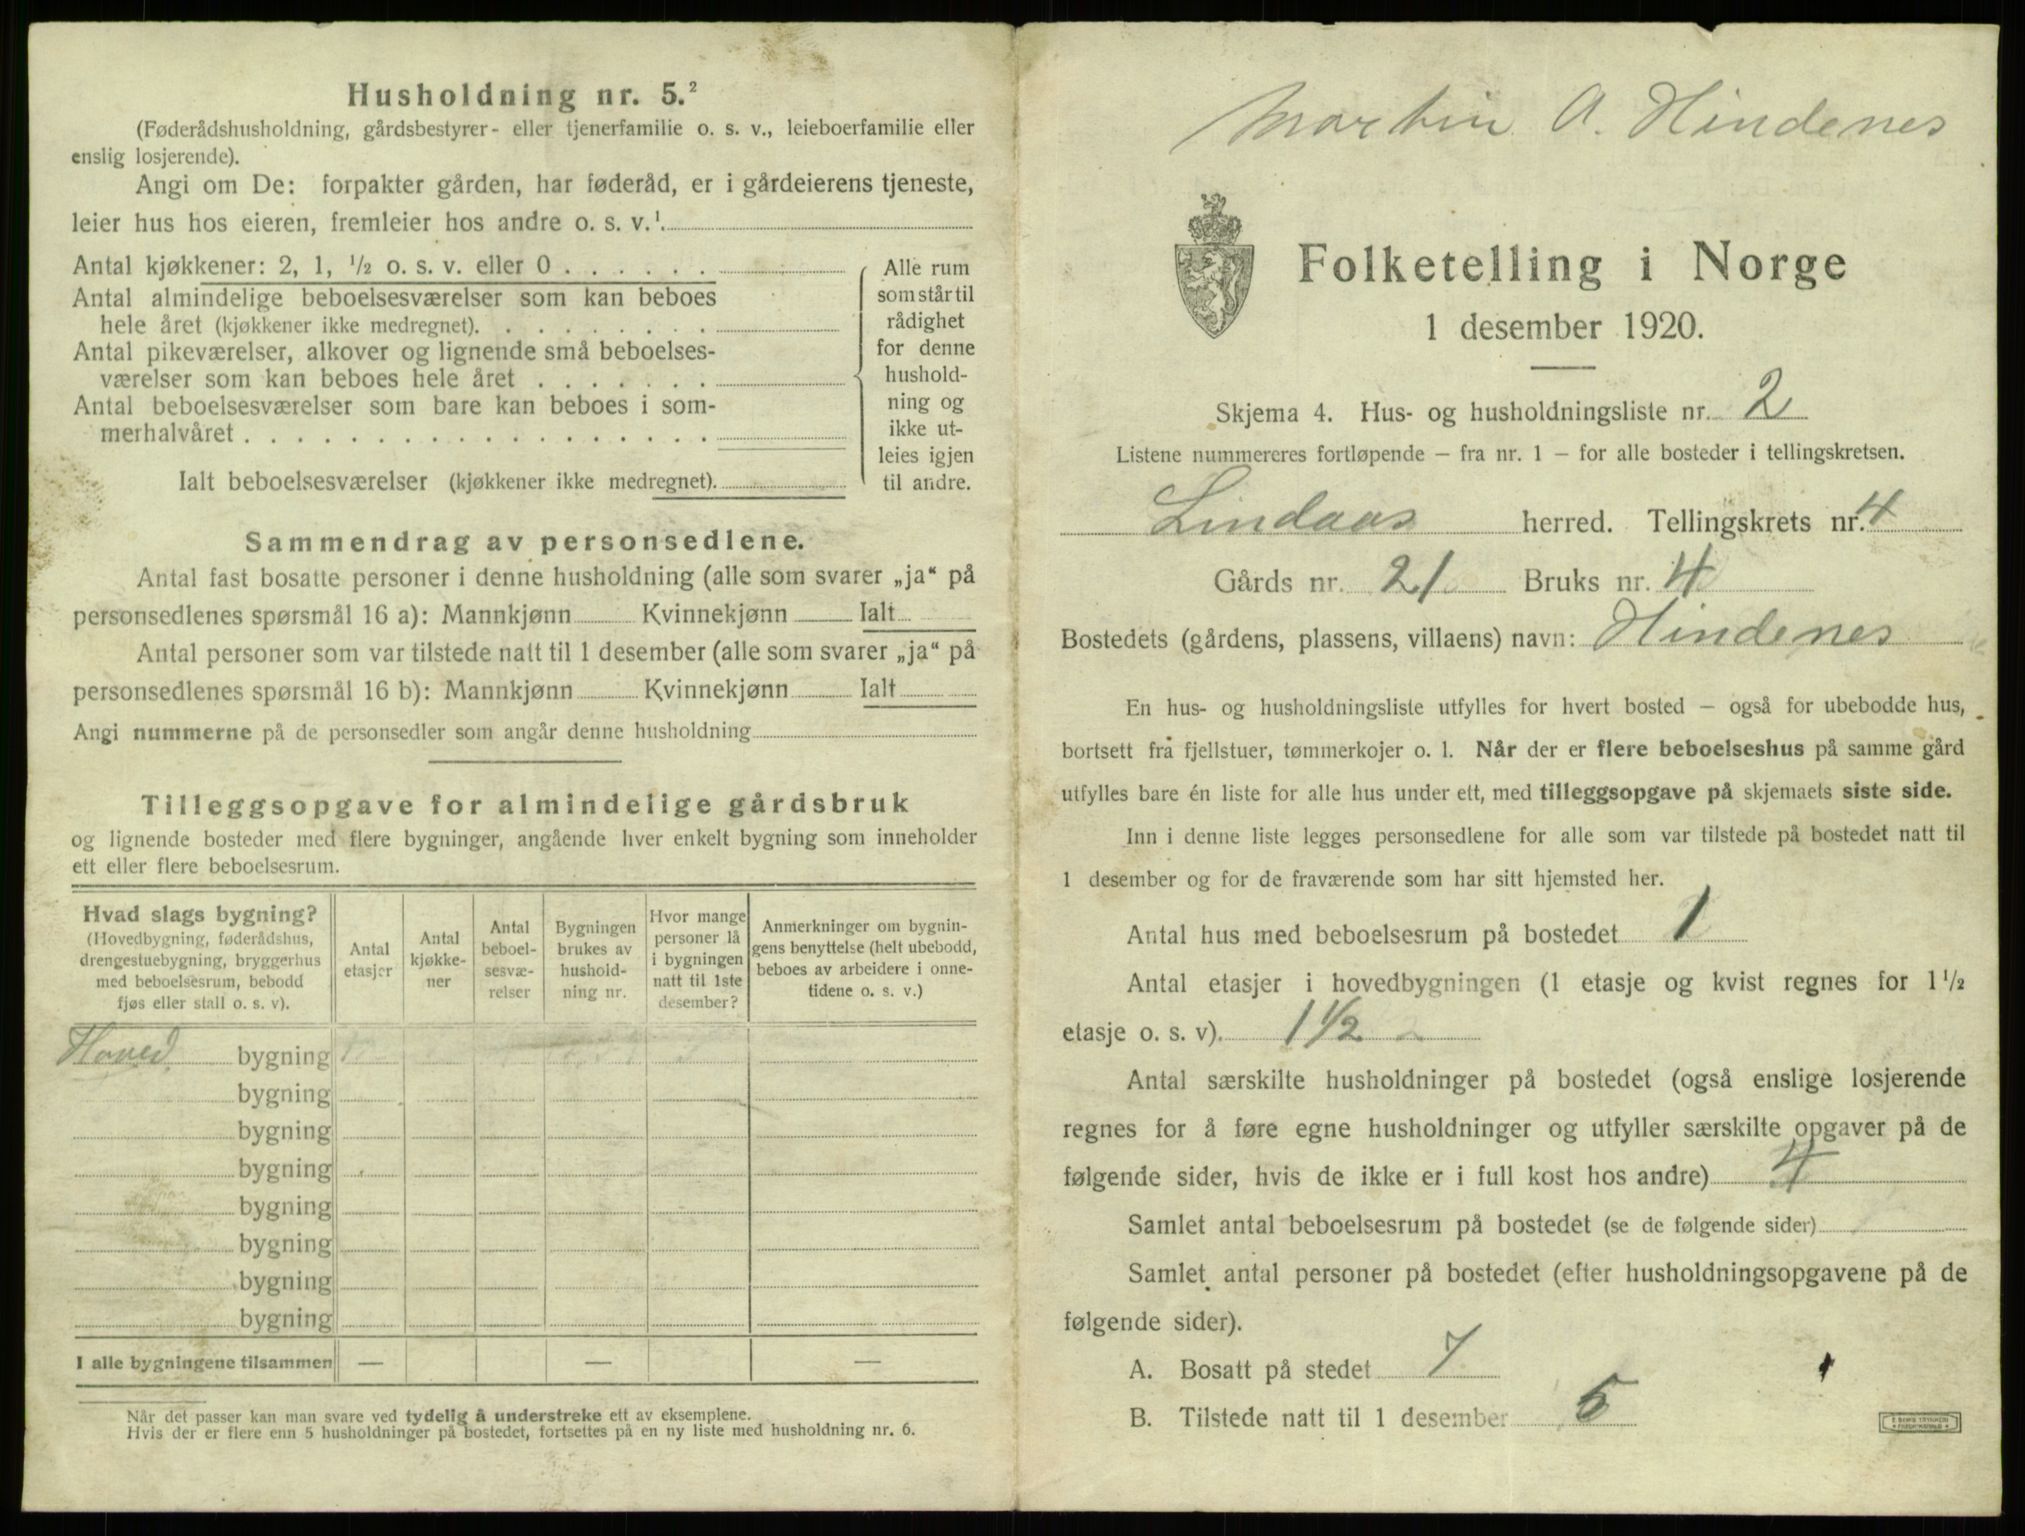 Husholdning nr. 5.²
(Føderådshusholdning, gårdsbestyrer- eller tjenerfamilie o. s. v., leieboerfamilie eller
enslig losjerende).
Angi om De: forpakter gården, har føderåd, er i gårdeierens tjeneste,
leier hus hos eieren, fremleier hos andre o. s. v.¹
Antal kjøkkener: 2, 1, ½ o. s. v. eller 0 . . . . . .
Antal almindelige beboelsesværelser som kan beboes
hele året (kjøkkener ikke medregnet). . . . . . . . .
Antal pikeværelser, alkover og lignende små beboelses-
værelser som kan beboes hele året . . . . . . .
Antal beboelsesværelser som bare kan beboes i som-
merhalvåret . . . . . . . . . . . . . . . . . .
Ialt beboelsesværelser (kjøkkener ikke medregnet).
Alle rum
som står til
rådighet
for denne
hushold-
ning og
ikke ut-
leies igjen
til andre.
Sammendrag av personsedlene.
Antal fast bosatte personer i denne husholdning (alle som svarer „ja“ på
personsedlenes spørsmål 16 a): Mannkjønn Kvinnekjønn Ialt
Antal personer som var tilstede natt til 1 desember (alle som svarer „ja“ på
personsedlenes spørsmål 16 b): Mannkjønn Kvinnekjønn Ialt
Angi nummerne på de personsedler som angår denne husholdning
Tilleggsopgave for almindelige gårdsbruk
og lignende bosteder med flere bygninger, angående hver enkelt bygning som inneholder
ett eller flere beboelsesrum.
Hvad slags bygning?
(Hovedbygning, føderådshus,
drengestuebygning, bryggerhus
med beboelsesrum, bebodd
fjøs eller stall o. s. v).
Antal
etasjer
Antal
kjøkke-
ner
Antal
beboel-
sesvæ-
relser
Bygningen
brukes av
hushold-
ning nr.
Hvor mange
personer lå
i bygningen
natt til 1ste
desember?
Anmerkninger om bygnin-
gens benyttelse (helt ubebodd,
beboes av arbeidere i onne-
tidene o. s. v.)
Hoved bygning
bygning
bygning
bygning
bygning
bygning
bygning
bygning
I alle bygningene tilsammen — — —
Når det passer kan man svare ved tydelig å understreke ett av eksemplene.
Hvis der er flere enn 5 husholdninger på bostedet, fortsettes på en ny liste med husholdning nr. 6.
Martin A. Hindenes
Folketelling i Norge
1 desember 1920.
Skjema 4. Hus- og husholdningsliste nr. 2
Listene nummereres fortløpende – fra nr. 1 – for alle bosteder i tellingskretsen.
Lindaas herred. Tellingskrets nr. 4
Gårds nr. 21 Bruks nr. 4
Bostedets (gårdens, plassens, villaens) navn: Hindenes
En hus- og husholdningsliste utfylles for hvert bosted – også for ubebodde hus,
bortsett fra fjellstuer, tømmerkojer o. l. Når der er flere beboelseshus på samme gård
utfylles bare én liste for alle hus under ett, med tilleggsopgave på skjemaets siste side.
Inn i denne liste legges personsedlene for alle som var tilstede på bostedet natt til
1 desember og for de fraværende som har sitt hjemsted her.
Antal hus med beboelsesrum på bostedet 1
Antal etasjer i hovedbygningen (1 etasje og kvist regnes for 1½
etasje o. s. v). 1½
Antal særskilte husholdninger på bostedet (også enslige losjerende
regnes for å føre egne husholdninger og utfyller særskilte opgaver på de
følgende sider, hvis de ikke er i full kost hos andre) 4
Samlet antal beboelsesrum på bostedet (se de følgende sider)
Samlet antal personer på bostedet (efter husholdningsopgavene på de
følgende sider).
A. Bosatt på stedet 7
B. Tilstede natt til 1 desember 5